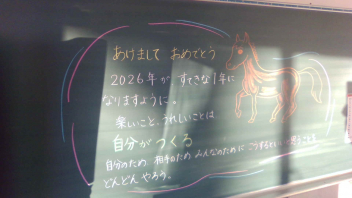 あけまして おめでとう
2026年が すてきな1年に
なりますように。
楽しいこと、うれしいことは
自分がつくる
自分のため 相手のため みんなのために こうするといいと思うことを
どんどん やろう。